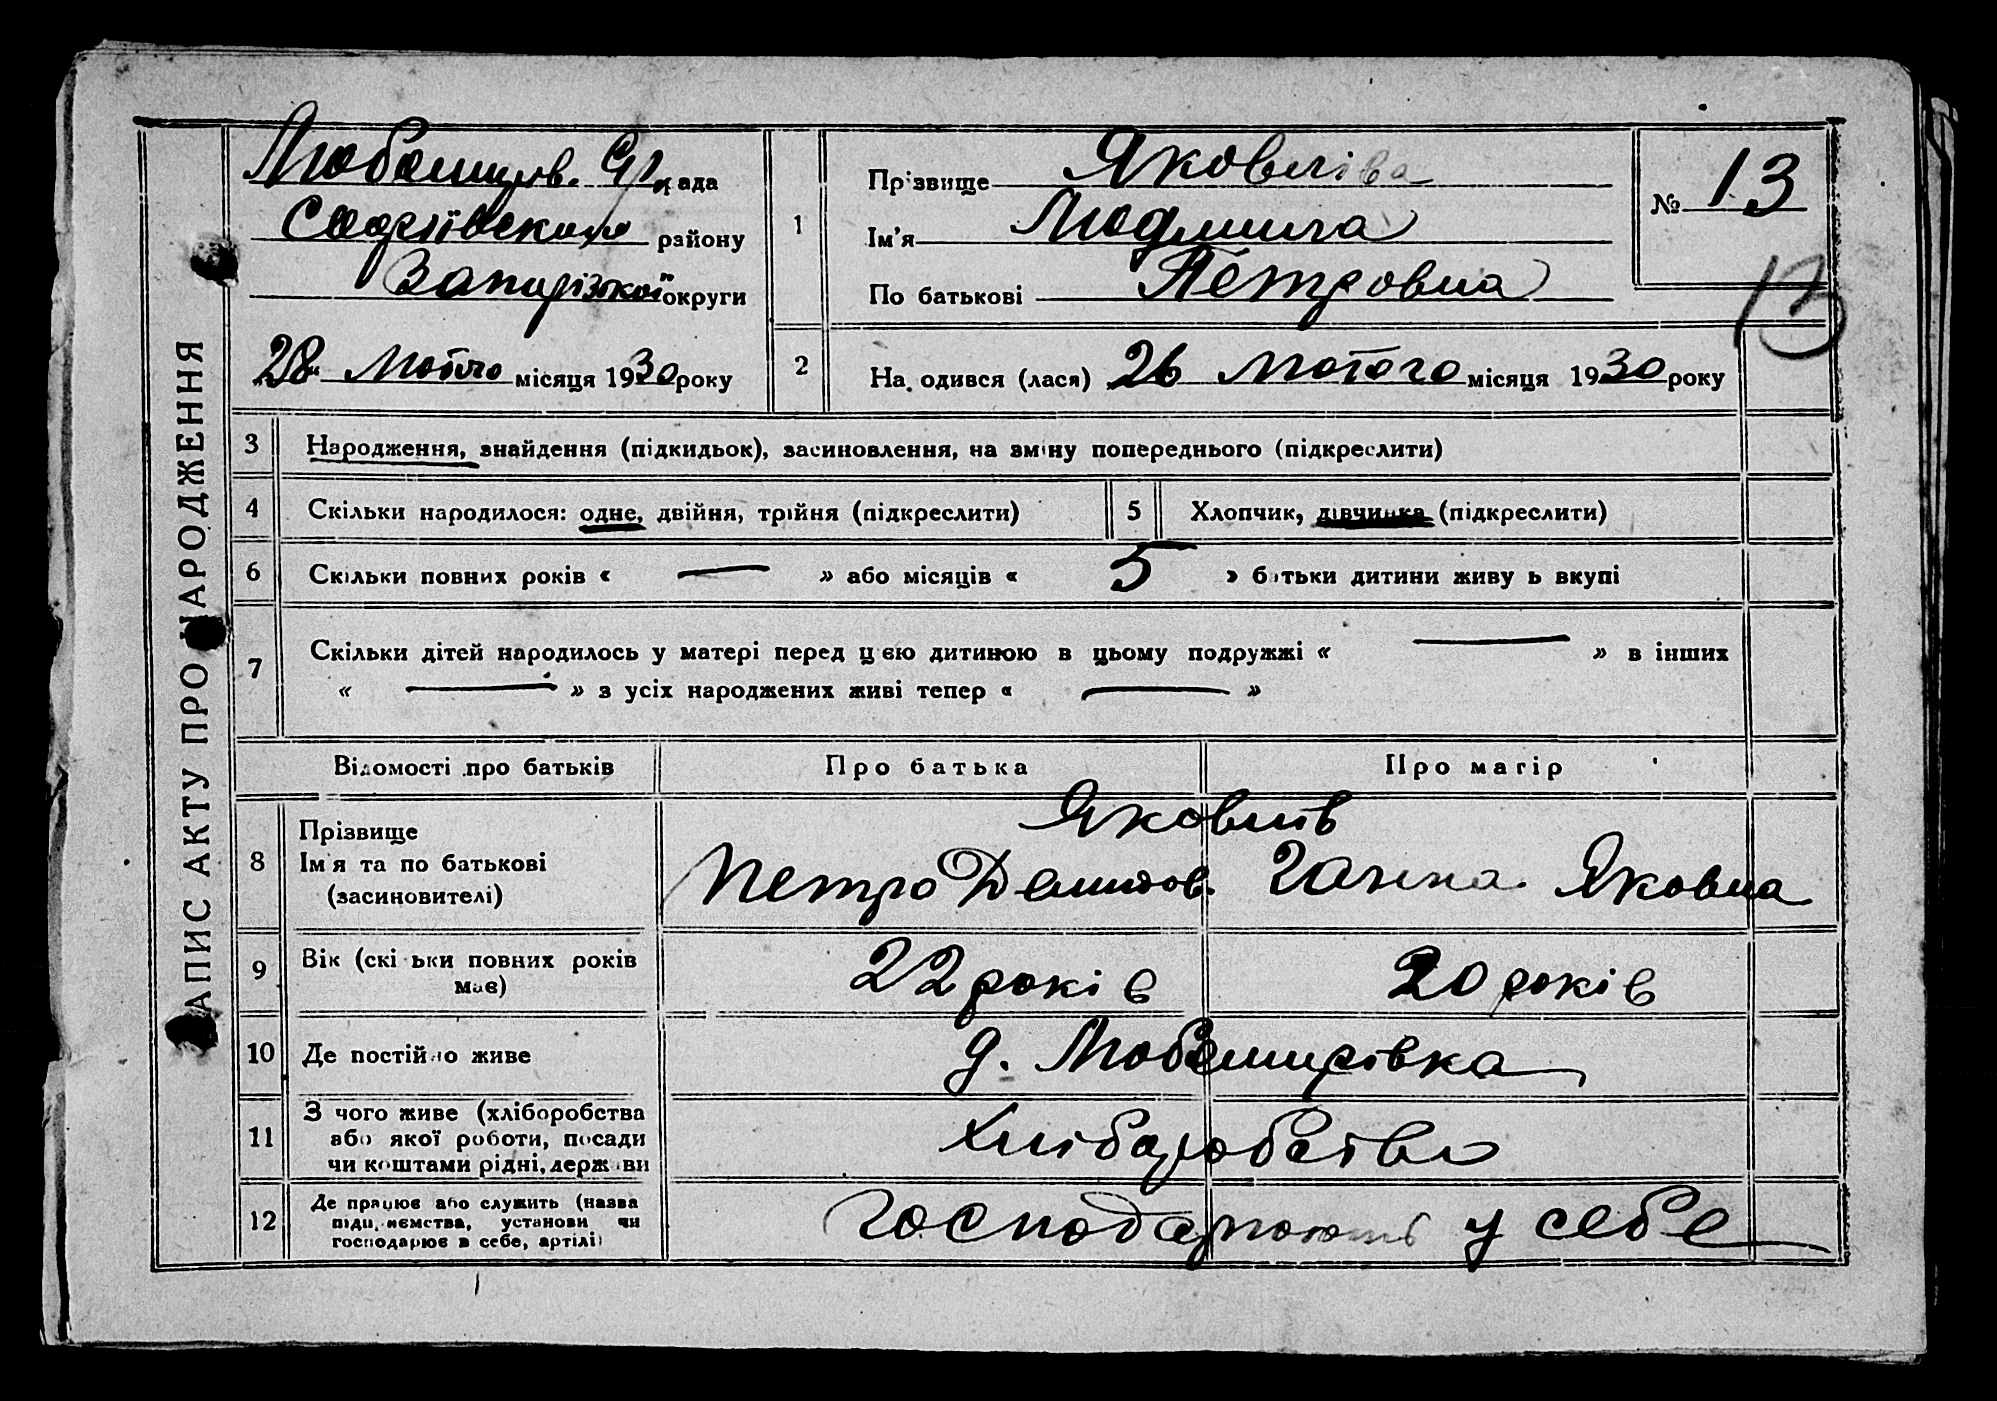 АПИС АКТУ ПРО НАРОДЖЕННЯ
Любомирів. С/рада
Софіївского району
Запорізької округи
28 Лютого місяця 1930 року
1
Прізвище Яковліва
Ім'я Людмила
По батькові Петровна
№ 13
13
2
На одився (лася) 26 Лютого місяця 1930 року
3 Народження, знайдення (підкидьок), засиновлення, на зміну попереднього (підкреслити)
4 Скільки народилося: одне, двійня, трійня (підкреслити) 5 Хлопчик, дівчинка (підкреслити)
6 Скільки повних років « — » або місяців « 5 » батьки дитини живу ь вкупі
7 Скільки дітей народилось у матері перед цією дитиною в цьому подружжі « — » в інших
« — » з усіх народжених живі тепер « — »
Відомості про батьків Про батька Про матір
8 Прізвище
Ім'я та по батькові
(засиновителі)
Яковлів
Петро Демидов. Ганна Яковна
9 Вік (скі ьки повних років
має)
22 років 20 років
10 Де постійно живе д. Любомирівка
11 З чого живе (хліборобства
або якої роботи, посади
чи коштами рідні, держави
Хліборобство
12 Де працює або служить (назва
підприємства, установи чи
господарює в себе, артілі)
Господарюють у себе